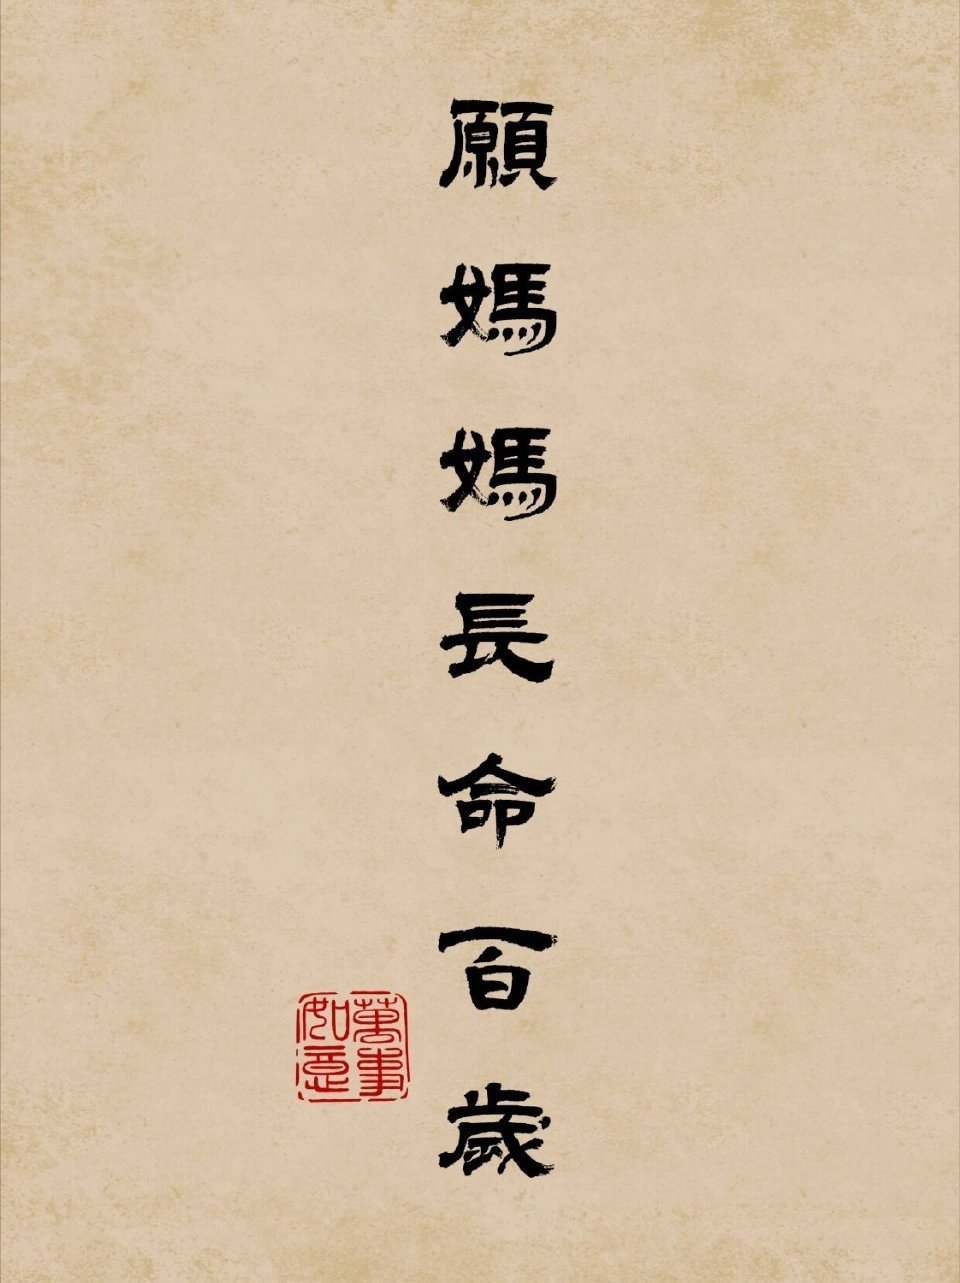 願媽媽長命百歲
萬事如意